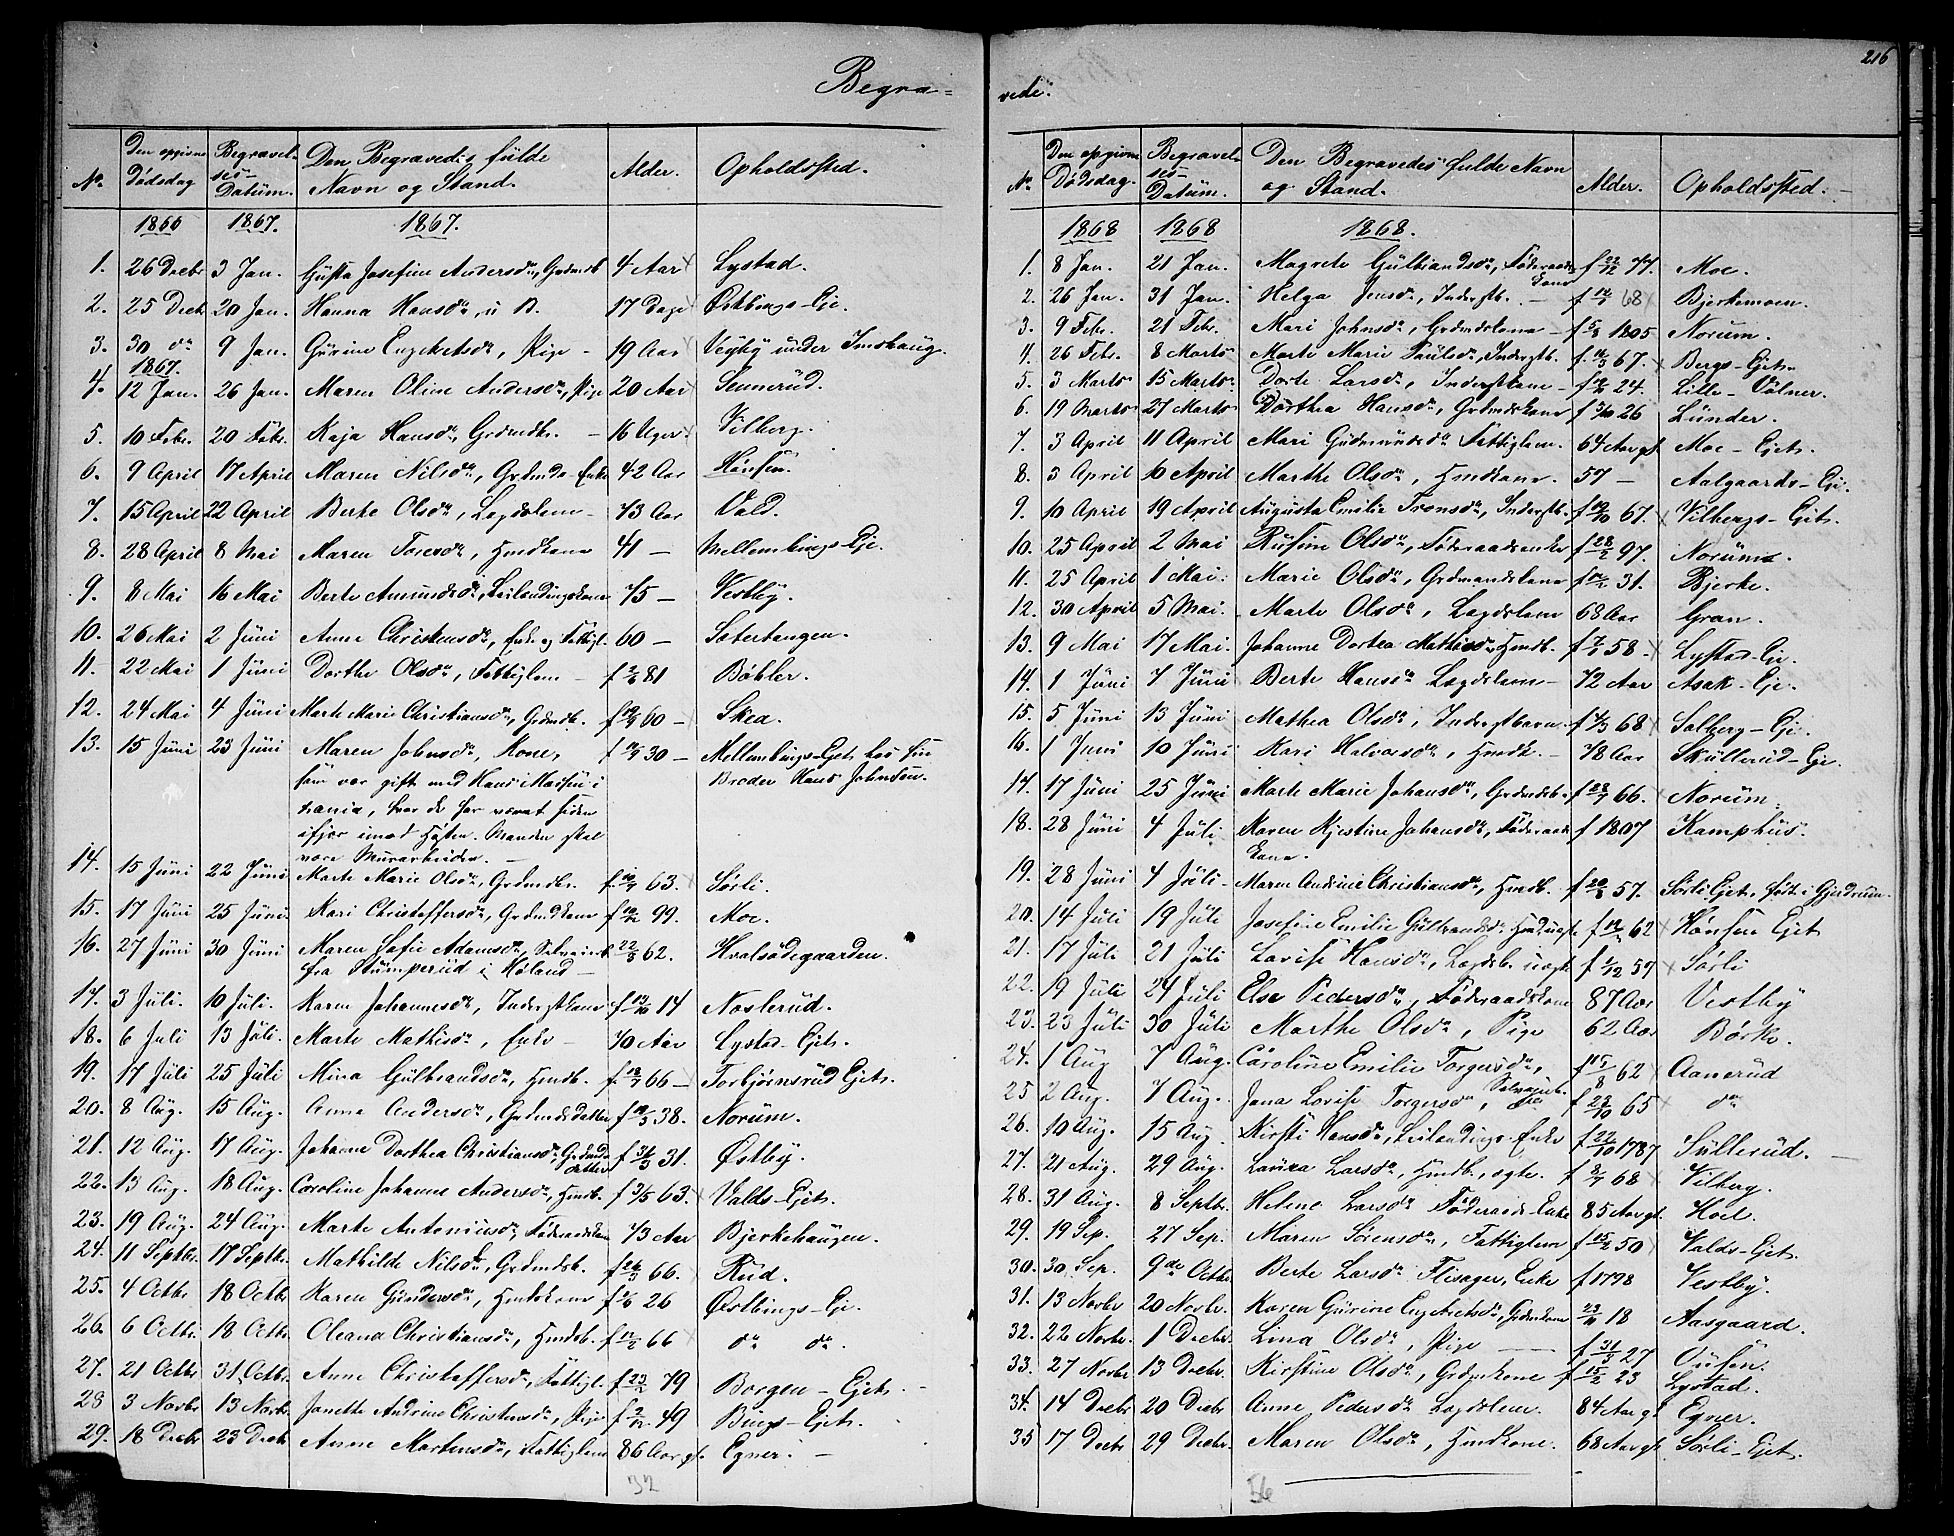 216
Begra- vede.
No. Den opgivne Dødsdag Begravelses-Datum. Den Begravedes fulde Navn og Stand. Alder. Opholdssted.
1866 1867. 1867.
1. 26 Decbr 3 Jan. Gusta Josefine Andersdr, Grdmdb. 4 Aar Lystad.
2. 25 Decbr 20 Jan. Hanna Hansdr, u. B. 17 Dage Østbings-Eje.
3. 30 dr 9 Jan. Gurine Engebretsdr, Pige - 19 Aar Vegby under Imshaug.
1867.
4. 12 Jan. 26 Jan. Maren Oline Andersdr, Pige 20 Aar
5. 10 Febr. 20 Febr. Kaja Hansdr, Grdmdb. - 16 Uger. Vilberg.
6. 9 April 17 April Maren Nilsdr, Grdmds-Enke 42 Aar Hønsen.
7. 15 April 22 April Berte Olsdr, Lægdslem - 73 Aar Vald.
8. 28 April 8 Mai Maren Toresdr, Hmdkone 41 - Mellembings-Eje.
9. 8 Mai 16 Mai Berte Amundsdr, Leilendingskone 75 - Vestby.
10. 26 Mai 2 Juni Anne Christensdr, Enke og Fattigl. 60 - Sætertangen.
11. 22 Mai 1 Juni Dorthe Olsdr, Fattiglem - f 81 Bøhler.
12. 24 Mai 4 Juni Marte Marie Christiansdr, Grdmdb. f 60 - Skea.
13. 15 Juni 23 Juni Maren Johnsdr, Kone, f 30 - Mellembings-Ejet hos sin
som var gift med Hans Madsen i Broder Hans Johnsen.
xania, hvor de har været siden
ifjor imod Høsten. Manden skal
være Murarbeider. -
14. 15 Juni 22 Juni Marte Marie Olsdr, Grdmdb. f. 63. Sørli.
15. 17 Juni 25 Juni Kari Christoffersdr, Grdmdkone f 99. Moe.
16. 27 Juni 30 Juni Maren Sofie Adamsdr, 22/5 62. Hvalsødegaarden.
fra i Høland -
17. 3 Juli. 10 Juli. Karen Johannesdr, Inderstkone f 14 Noslerud.
18. 6 Juli 13 Juli. Marte Mathisdr, Enke - 70 Aar Lystad-Ejet.
19. 17 Juli 25 Juli Mina Gulbrandsdr, Hmdb. f 66 - Torbjørnsrud Ejet.
20. 8 Aug. 15 Aug. Anna Andersdr, Grdmdsdatter f 38. Norum.
21. 12 Aug. 17 Aug. Johanne Dorthea Christiansdr, Grdmds datter f 31/3 31. Østby.
22. 13 Aug. 18 Aug. Caroline Johanne Andersdr, Hmdb. f 3/5 63. Valds-Ejet.
23. 19 Aug. 24 Aug. Marte Antoniusdr, Føderaadskone 73 Aar Bjerkehaugen.
24. 11 Septbr. 17 Septbr. Mathilde Nilsdr, Grdmdsb. f 66. Rud.
25. 4 Octbr 18 Octbr Karen Gundersdr, Hmdskone f 26 Østbings-Eje.
26. 6 Octbr. 18 Octbr. Oleana Christiansdr, Hmdsb. f 66 dr dr.
27. 21 Octbr 31 Octbr. Anne Christoffersdr, Fattigl. f 79 Borgen-Ejet.
28 3 Novbr 13 Novbr. Janette Andrine Christensdr, Pige f 49 Bings-Ejet.
29. 18 Decbr 23 Decbr Anne Mortensdr, Fattiglem 86 Aar gl. Egner. -
32
No. Den opgivne Dødsdag. Begravelses Datum. Den Begravedes fulde Navn og Stand. Alder. Opholdssted. -
1868 1868 1868.
1. 8 Jan. 21 Jan. Magrete Gulbrandsdr, Føderaads kone f 22/12 77. Moe.
2. 26 Jan. 31 Jan. Helga Jensdr, Inderstb. - f 68 Bjerkemoen.
3. 9 Febr. 21 Febr. Mari Johnsdr, Grdmdskone - f 1805 Norum.
4. 26 Febr. 8 Marts Marte Marie Paulsdr, Inderstb. f. 67. Bergs-Ejet.
5. 3 Marts 15 Marts. Dorte Larsdr, Inderstkone - f 24. Lille-Vølner.
6. 19 Marts 27 Marts Dorthea Hansdr, Grdmdskone f 26 Lunder.
7. 3 April 11 April Mari Gudmundsdr Fattiglem. 64 Aar gl. Moe-Ejet.
8. 3 April 10 April Marthe Olsdr, Hmdkone. 57 - Aalgaards-Eje.
9. 10 April 19 April Augusta Emilie Tronsdr, Inderstb. f 67. Vilbergs-Ejet.
10. 25 April 2 Mai Rusine Olsdr, Føderaadsenke f 28/2 97. Norum.
11. 25 April 1 Mai. Marie Olsdr, Grdmandskone f 31. Bjerke.
12. 30 April 5 Mai. Marte Olsdr, Lægdslem 68 Aar Gran.
13. 9 Mai 17 Mai. Johanne Dortea Mathisdr, Hmdb. f 58 - Lystad-Eje.
14. 1 Juni 7 Juni Berte Hansdr Lægdslem - 72 Aar Asak-Eje.
15. 5 Juni 13 Juni Mathea Olsdr, Inderstbarn. f 4/3 68 Solberg-Eje.
16. 1 Juni 10 Juni Kari Halvorsdr, Hmdk. - 78 Aar Skullerud-Eje.
17. 17 Juni 25 Juni Marte Marie Johansdr, Grdmdsb. f 66. Norum.
18. 28 Juni 4 Juli. Karen Kjestine Johansdr, Føderaads kone. f 1807 Kamphus.
19. 28 Juni 4 Juli - Maren Andrine Christiansdr, Hmdb. f 57. Sørli Ejet, født i Gjerdrum.
20. 14 Juli 19 Juli Josefine Emilie Gulbrandsdr Hmd uægte f 62 Hønsen Ejet
21. 17 Juli 21 Juli Lovise Hansdr, Lægdsb. uægte f 1/12 57 Sørli
22. 19 Juli 24 Juli Else Pedersdr, Føderaadskone 87 Aar Vestby
23. 23 Juli 30 Juli Marthe Olsdr, Pige 62 Aar Børke.
24. 1 Aug 7 Aug. Caroline Emilie Torgersdr, f 15/8 62 Aanerud
25 2 Aug. 7 Aug. Jana Lovise Torgersdr, dr f 23/10 65 dr
26. 10 Aug. 15 Aug. Kirsti Hansdr, Leilendings-Enke f 22/10 1787 Sullerud. -
27. 21 Aug. 29 Aug. Laura Larsdr, Hmdb., ægte. f 68 Vilberg.
28. 31 Aug. 8 Septbr. Helene Larsdr Føderaads-Enke 85 Aar gl. Hoel.
29. 19 Sep. 27 Sep. Maren Sørensdr, Fattiglem f 50 Valds-Ejet.
30. 30 Sep. 9de Octbr Berte Larsdr Flisager, Enke f 1798 Vestby.
31. 13 Novbr 20 Novbr. Karen Gurine Engebretsdr, Grdmkone 18 Aasgaard.
32. 22 Novbr. 1 Decbr. Lina Olsdr, Pige - f 31/3 27 Ousen.
33. 27 Novbr 13 Decbr. Kirstine Olsdr, Grdmkone f 15/2 23 Lystad.
34. 14 Decbr 20 Decbr Anne Pedersdr Lægdslem. 84 Aar gl Egner.
35 17 Decbr 29 Decbr. Maren Olsdr, Hmdkone. 68 Aar gl. Sørli-Ejet.
56